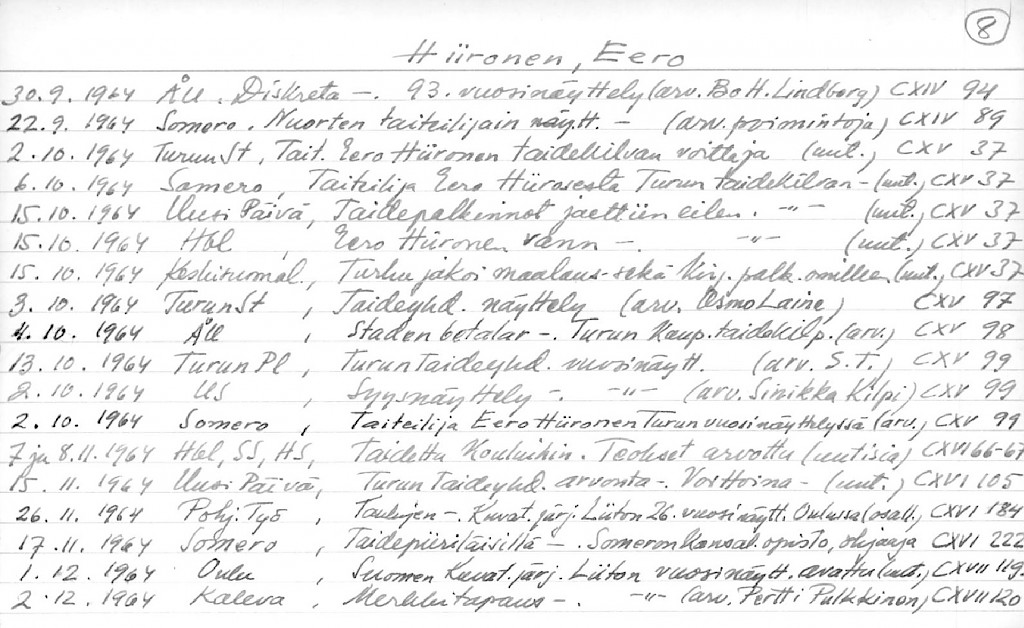 8
Hiironen, Eero
30.9.1964 ÅU. Diskreta -. 93. vuosinäyttely (arv. Bo H. Lindberg) CXIV 94
22.9.1964 Somero. Nuorten taiteilijain näytt. - (arv. poimintoja) CXIV 89
2.10.1964 Turun St, Tait. Eero Hiironen taidekilvan voittaja (uut.) CXV 37
6.10.1964 Somero, Taiteilija Eero Hiirosesta Turun taidekilvan - (uut.) CXV 37
15.10.1964 Uusi Päivä, Taidepalkinnot jaettiin eilen. -"- (uut.) CXV 37
15.10.1964 Hbl, Eero Hiironen vann -. -"- (uut.) CXV 37
15.10.1964 Keskisuomal., Turku jakoi maalaus- sekä kirj. palk. omilleen (uut.) CXV 37
3.10.1964 Turun St, Taideyhd. näyttely (arv. Osmo Laine) CXV 97
4.10.1964 ÅU, Staden betalar -. Turun kaup. taidekilp. (arv.) CXV 98
13.10.1964 Turun Pl, Turun Taideyhd. vuosinäytt. (arv. S.T.) CXV 99
2.10.1964 US, Syysnäyttely -. -"- (arv. Sinikka Kilpi) CXV 99
2.10.1964 Somero, Taiteilija Eero Hiironen Turun vuosinäyttelyssä (arv.) CXV 99
7 ja 8.11.1964 Hbl, SS, HS, Taidetta kouluihin. Teokset arvottu (uutisia) CXVI 66-67
15.11.1964 Uusi Päivä, Turun Taideyhd. arvonta -. Voittoina - (uut.) CXVI 105
26.11.1964 Pohj. Työ, -. Kuvat. järj. Liiton 26. vuosinäytt. Oulussa (osall.) CXVI 184
17.11.1964 Somero, Taidepiiriläisillä -. Someron kansal. opisto, ohjaaja CXVI 222
1.12.1964 Oulu, Suomen Kuvat. järj. Liiton vuosinäytt. avattu (uut.) CXVII 119.
2.12.1964 Kaleva, Merkkitapaus -. -"- (arv. Pertti Pulkkinen) CXVII 120